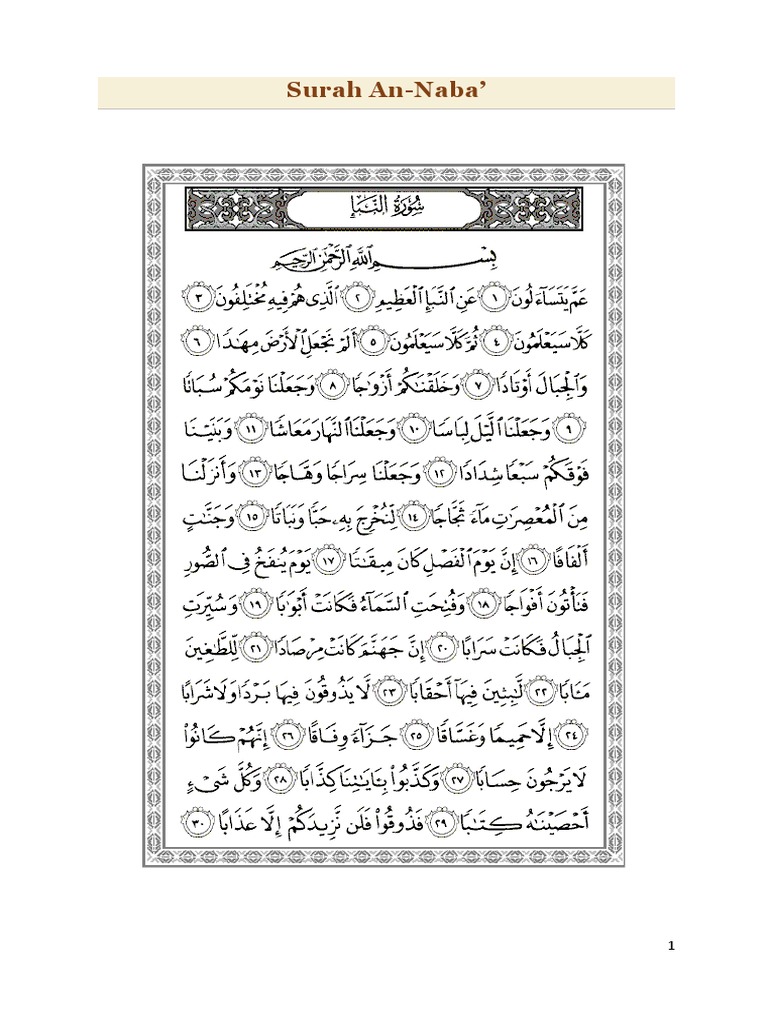 Surah An-Naba’
سُورَةُ النَّبَإِ
بِسْمِ اللَّهِ الرَّحْمَٰنِ الرَّحِيمِ
عَمَّ يَتَسَاءَلُونَ ١ عَنِ النَّبَإِ الْعَظِيمِ ٢ الَّذِي هُمْ فِيهِ مُخْتَلِفُونَ ٣
كَلَّا سَيَعْلَمُونَ ٤ ثُمَّ كَلَّا سَيَعْلَمُونَ ٥ أَلَمْ نَجْعَلِ الْأَرْضَ مِهَٰدًا ٦
وَالْجِبَالَ أَوْتَادًا ٧ وَخَلَقْنَٰكُمْ أَزْوَٰجًا ٨ وَجَعَلْنَا نَوْمَكُمْ سُبَاتًا
٩ وَجَعَلْنَا الَّيْلَ لِبَاسًا ١٠ وَجَعَلْنَا النَّهَارَ مَعَاشًا ١١ وَبَنَيْنَا
فَوْقَكُمْ سَبْعًا شِدَادًا ١٢ وَجَعَلْنَا سِرَاجًا وَهَّاجًا ١٣ وَأَنزَلْنَا
مِنَ الْمُعْصِرَٰتِ مَاءً ثَجَّاجًا ١٤ لِّنُخْرِجَ بِهِۦ حَبًّا وَنَبَاتًا ١٥ وَجَنَّٰتٍ
أَلْفَافًا ١٦ إِنَّ يَوْمَ الْفَصْلِ كَانَ مِيقَٰتًا ١٧ يَوْمَ يُنفَخُ فِي الصُّورِ
فَتَأْتُونَ أَفْوَاجًا ١٨ وَفُتِحَتِ السَّمَاءُ فَكَانَتْ أَبْوَٰبًا ١٩ وَسُيِّرَتِ
الْجِبَالُ فَكَانَتْ سَرَابًا ٢٠ إِنَّ جَهَنَّمَ كَانَتْ مِرْصَادًا ٢١ لِّلطَّٰغِينَ
مَـَٔابًا ٢٢ لَّٰبِثِينَ فِيهَا أَحْقَابًا ٢٣ لَّا يَذُوقُونَ فِيهَا بَرْدًا وَلَا شَرَابًا
٢٤ إِلَّا حَمِيمًا وَغَسَّاقًا ٢٥ جَزَاءً وِفَاقًا ٢٦ إِنَّهُمْ كَانُوا۟
لَا يَرْجُونَ حِسَابًا ٢٧ وَكَذَّبُوا۟ بِـَٔايَٰتِنَا كِذَّابًا ٢٨ وَكُلَّ شَيْءٍ
أَحْصَيْنَٰهُ كِتَٰبًا ٢٩ فَذُوقُوا۟ فَلَن نَّزِيدَكُمْ إِلَّا عَذَابًا ٣٠
1